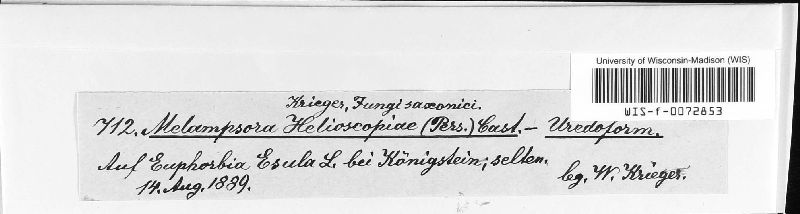 University of Wisconsin-Madison (WIS)
WIS-f-0072853
Krieger, Fungi saxonici.
712. Melampsora Helioscopiae (Pers.) Cast. – Uredoform.
Auf Euphorbia Esula L. bei Königstein; selten.
14. Aug. 1889. leg. W. Krieger.